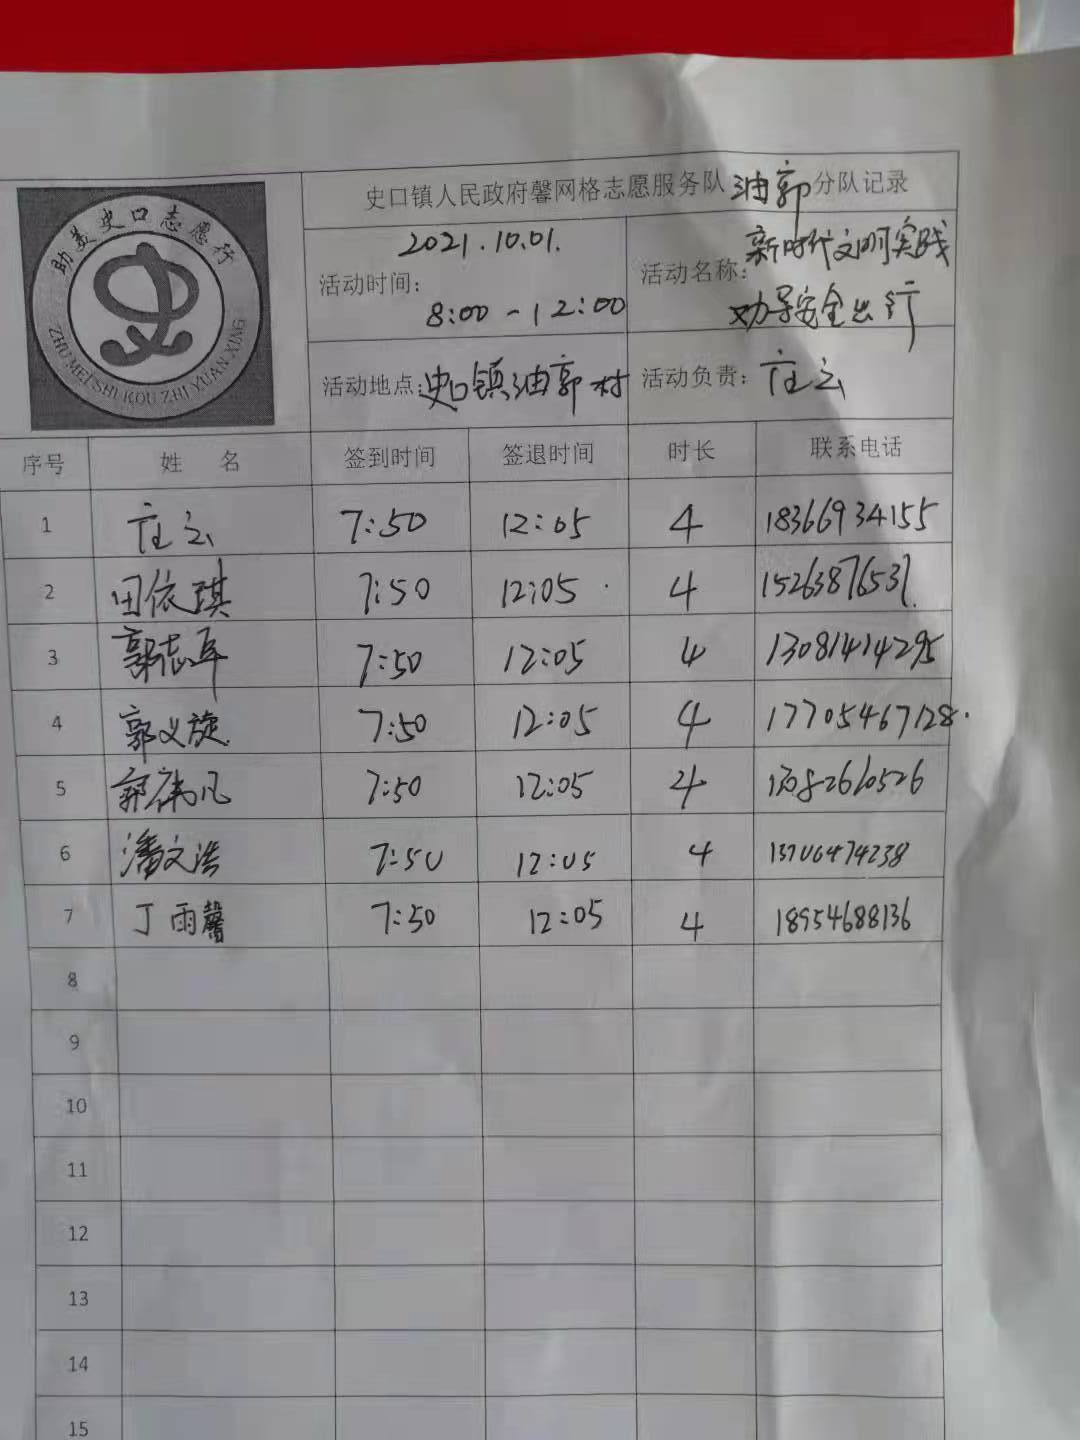 助美史口志愿行
ZHU MEI SHI KOU ZHI YUAN XING
史口镇人民政府馨网格志愿服务队油郭分队记录
活动时间: 2021.10.01. 8:00-12:00
活动名称: 新时代文明实践 劝导安全出行
活动地点: 史口镇油郭村
活动负责: 庄云
序号 姓 名 签到时间 签退时间 时长 联系电话
1 庄云 7:50 12:05 4 18366934155
2 田依琪 7:50 12:05 4 15263876537
3 郭志军 7:50 12:05 4 13081414295
4 郭义旋 7:50 12:05 4 17705467128
5 郭 凡 7:50 12:05 4
6 潘文浩 7:50 12:05 4 13706474238
7 丁雨馨 7:50 12:05 4 18954688136
8
9
10
11
12
13
14
15